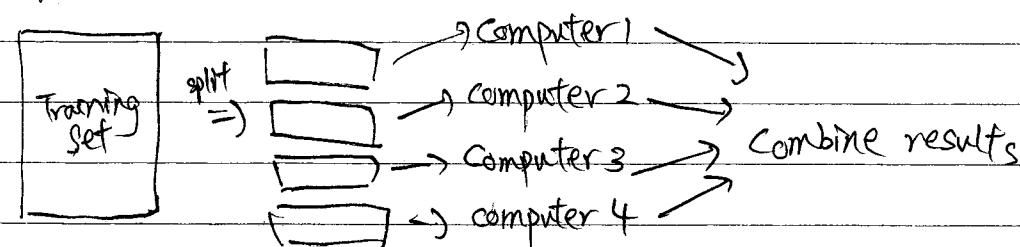 Training
Set
split
Computer 1
Computer 2
Computer 3
computer 4
Combine results